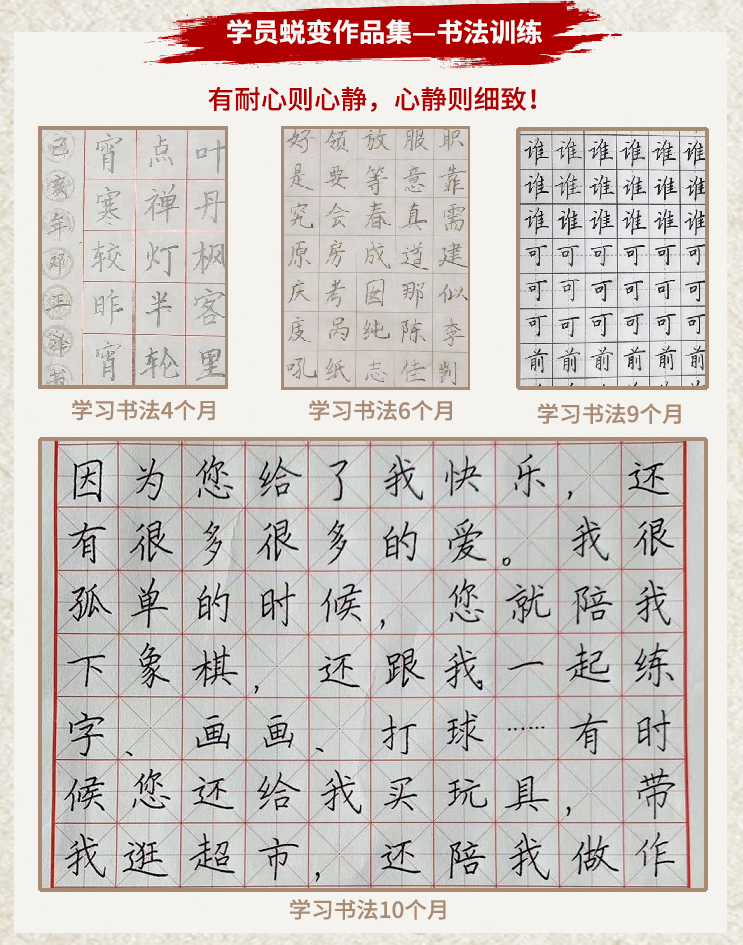 学员蜕变作品集—书法训练
有耐心则心静，心静则细致！
己 宵 点 叶
亥 寒 禅 丹
年 较 灯 枫
邓 昨 半 客
宵 轮 里
好 领 放 服 职
是 要 等 意 靠
究 会 春 真 需
原 房 成 道 建
庆 考 因 那 似
度 纯 陈 李
吼 纸 志 佳
谁 谁 谁 谁 谁 谁
谁 谁 谁 谁 谁 谁
谁 谁 谁 谁 谁 谁
可 可 可 可 可 可
可 可 可 可 可 可
可 可 可 可 可 可
前 前 前 前 前 前
学习书法4个月
学习书法6个月
学习书法9个月
因为您给了我快乐，还
有很多很多的爱。我很
孤单的时候，您就陪我
下象棋，还跟我一起练
字、画画、打球……有时
候您还给我买玩具，带
我逛超市，还陪我做作
学习书法10个月